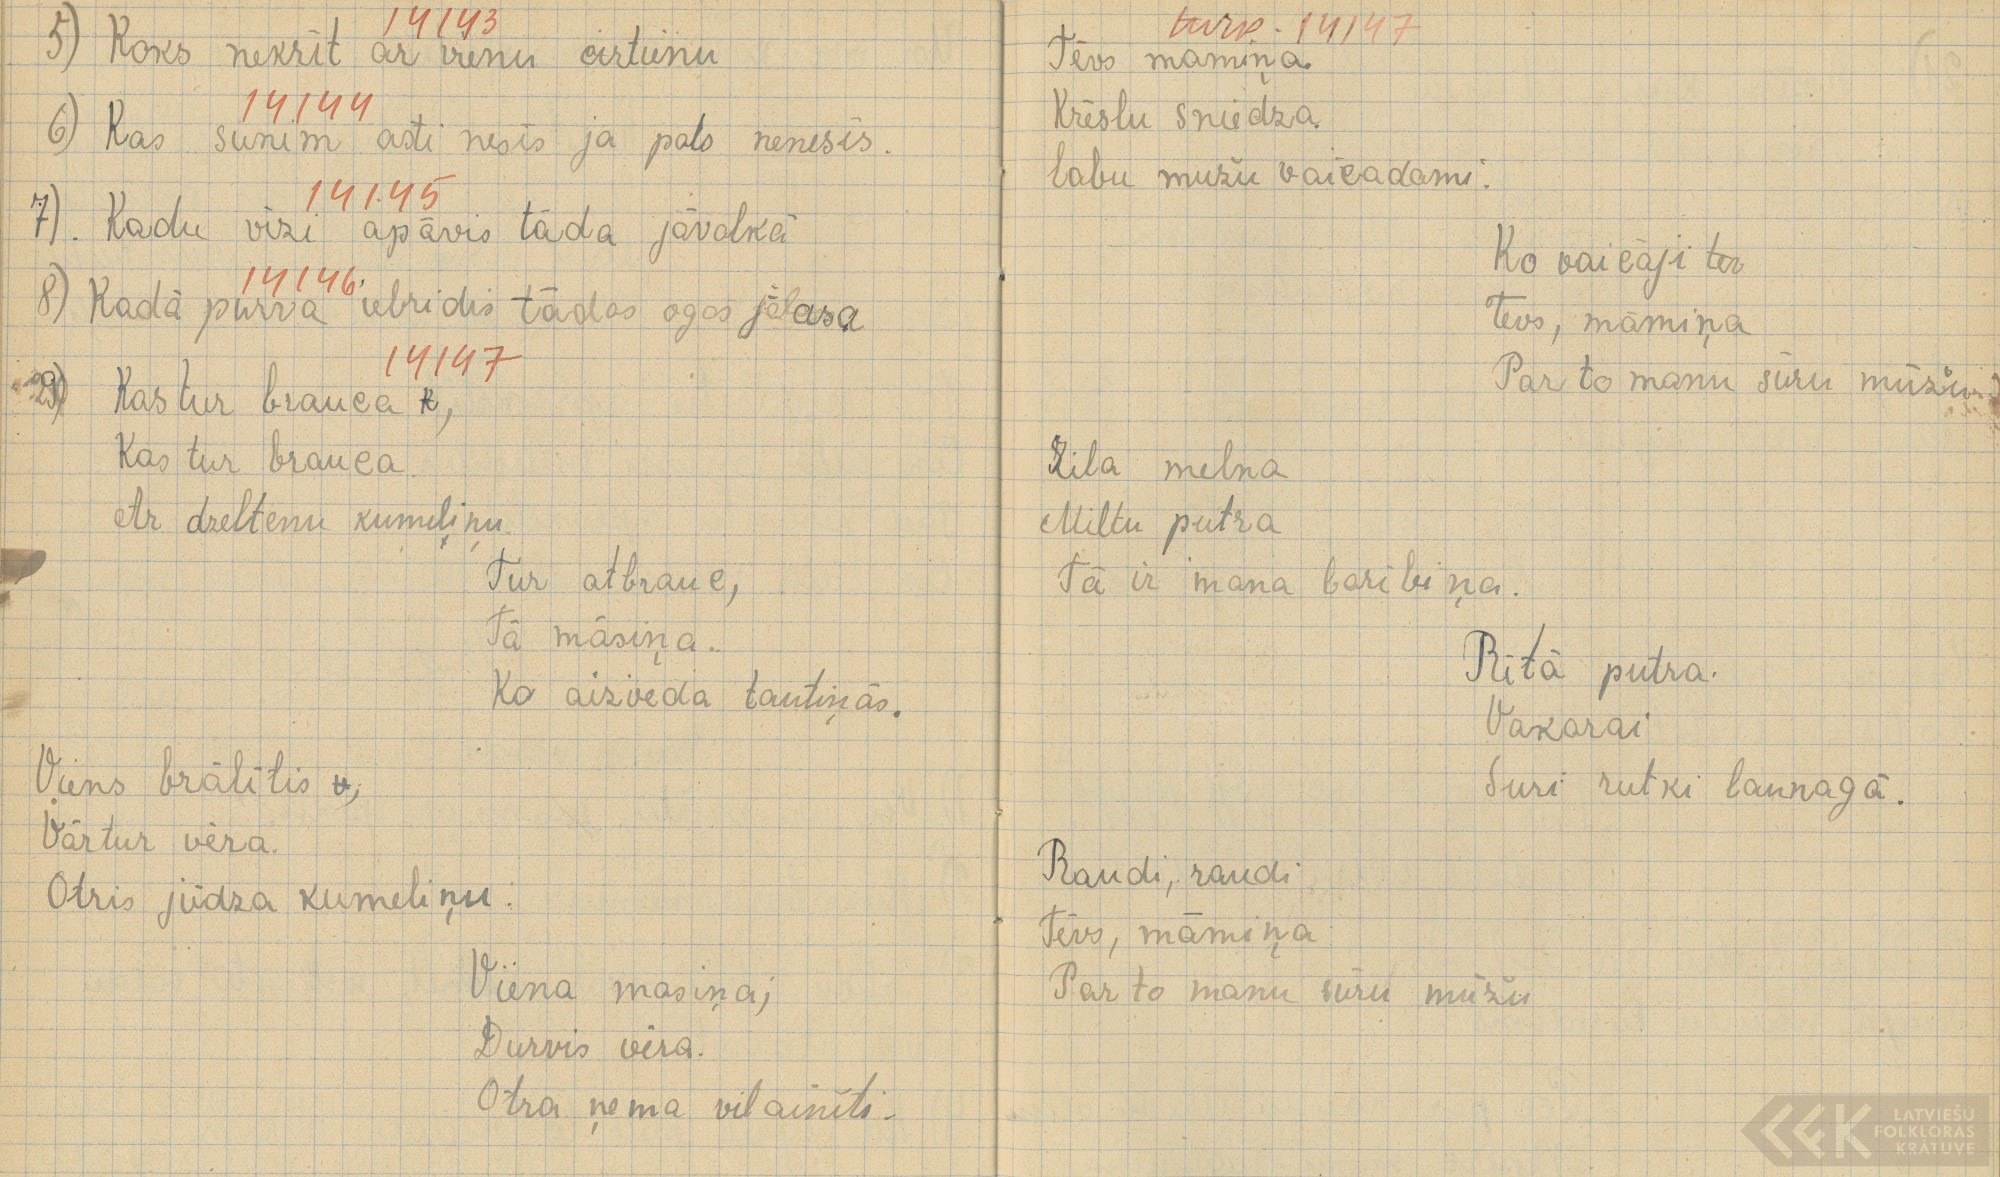 14143
5) Koks nekrīt ar vienu cirtienu
14144
6) Kas sunim asti nesīs ja pats nenesīs.
14145
7). Kadu vīzi apāvis tāda jāvalkā
14146
8) Kadā purva iebridis tādas ogas jālasa
14147
9) Kas tur brauca k,
Kas tur brauca
Ar dzeltenu kumeliņu
Tur atbrauc,
Tā māsiņa.
Ko aizveda tautiņās.
Viens brālītis v,
Vārtur vēra.
Otris jūdza kumeliņu.
Viena masiņa;
Durvis vēra.
Otra ņema vilainīti.
turp. 14147
Tēvs mamiņa.
Krēslu sniedza.
labu mužu vaicadami.
Ko vaicāji
Tevs, māmiņa
Par to manu sūru mūžu.
Zila melna
Miltu putra
Tā ir mana barībiņa.
Rītā putra.
Vakarai
Suri rutki launagā.
Raudi, raudi
Tēvs, māmiņa
Par to manu sūru mūžu
LATVIEŠU
FOLKLORAS
KRĀTUVE
LFK